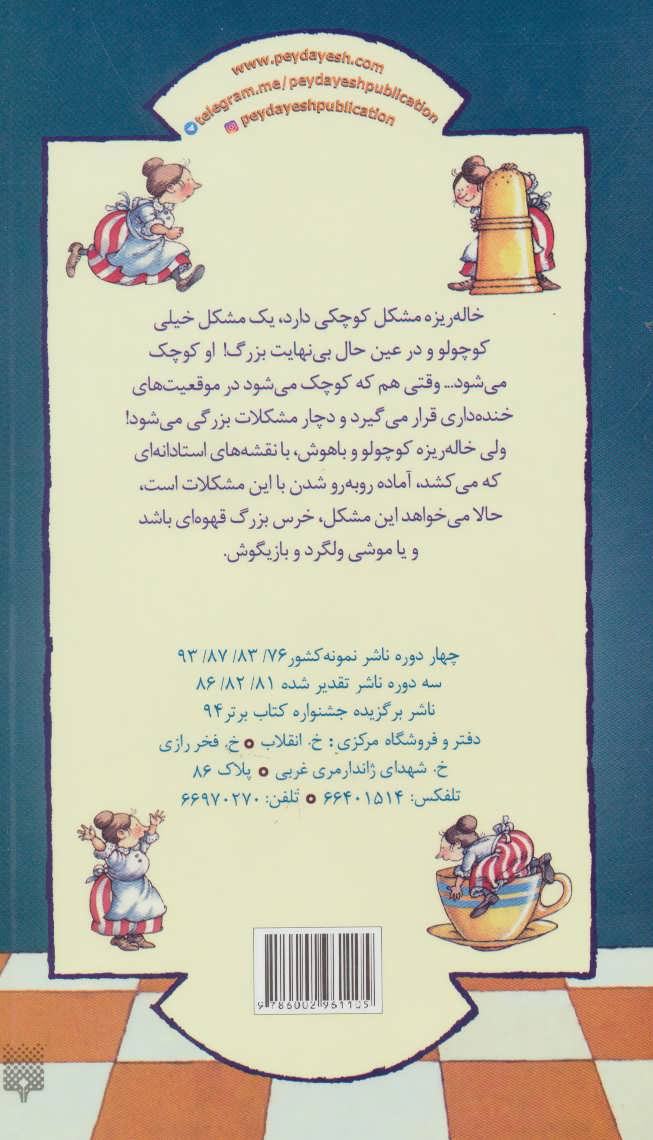 www.peydayesh.com
telegram.me/peydayeshpublication
peydayeshpublication
خاله‌ریزه مشکل کوچکی دارد، یک مشکل خیلی
کوچولو و در عین حال بی‌نهایت بزرگ! او کوچک
می‌شود... وقتی هم که کوچک می‌شود در موقعیت‌های
خنده‌داری قرار می‌گیرد و دچار مشکلات بزرگی می‌شود!
ولی خاله‌ریزه کوچولو و باهوش، با نقشه‌های استادانه‌ای
که می‌کشد، آماده روبه‌رو شدن با این مشکلات است،
حالا می‌خواهد این مشکل، خرس بزرگ قهوه‌ای باشد
و یا موشی ولگرد و بازیگوش.
چهار دوره ناشر نمونه کشور ۷۶/ ۸۳/ ۸۷/ ۹۳
سه دوره ناشر تقدیر شده ۸۱/ ۸۲/ ۸۶
ناشر برگزیده جشنواره کتاب برتر ۹۴
دفتر و فروشگاه مرکزی: خ. انقلاب • خ. فخر رازی
خ. شهدای ژاندارمری غربی • پلاک ۸۶
تلفکس: ۶۶۴۰۱۵۱۴ • تلفن: ۶۶۹۷۰۲۷۰
9 786002 961105